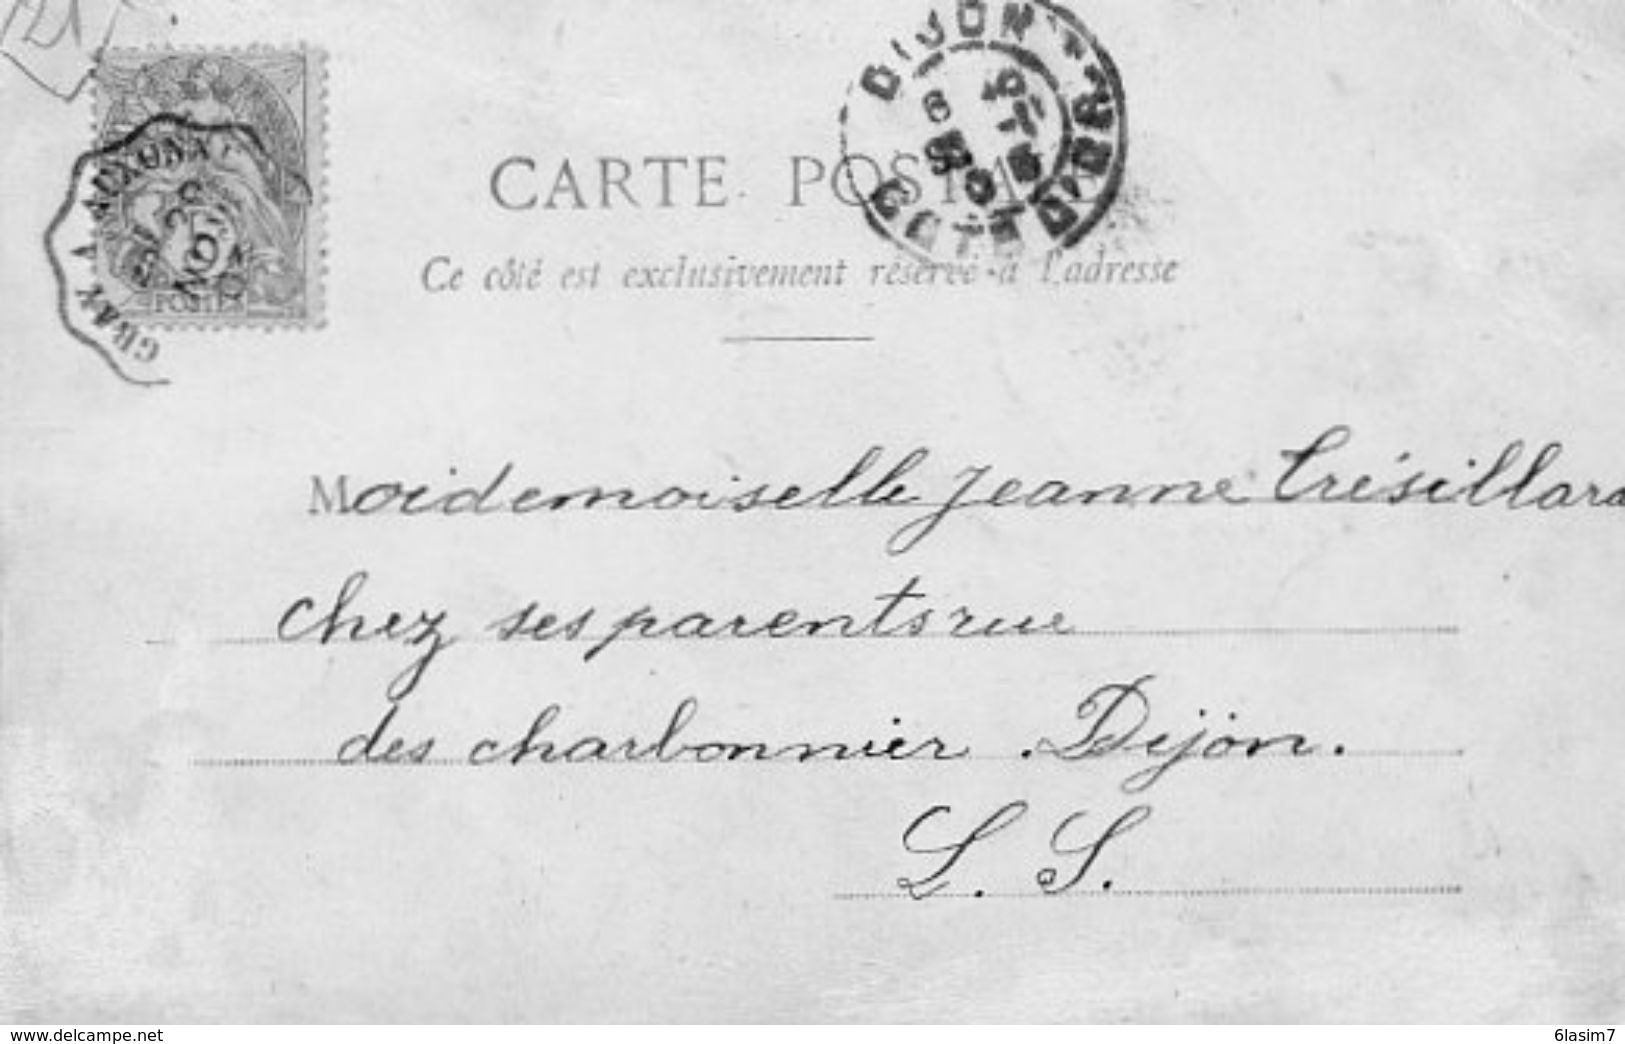 CARTE POSTALE
Ce côté est exclusivement réservé à l'adresse
GRAY A AUXONNE
DIJON
COTE D'OR
POSTES
Moidemoiselle Jeanne Trésillard
chez ses parents rue
des charbonnier . Dijon.
L. S.
www.delcampe.net
6lasim7